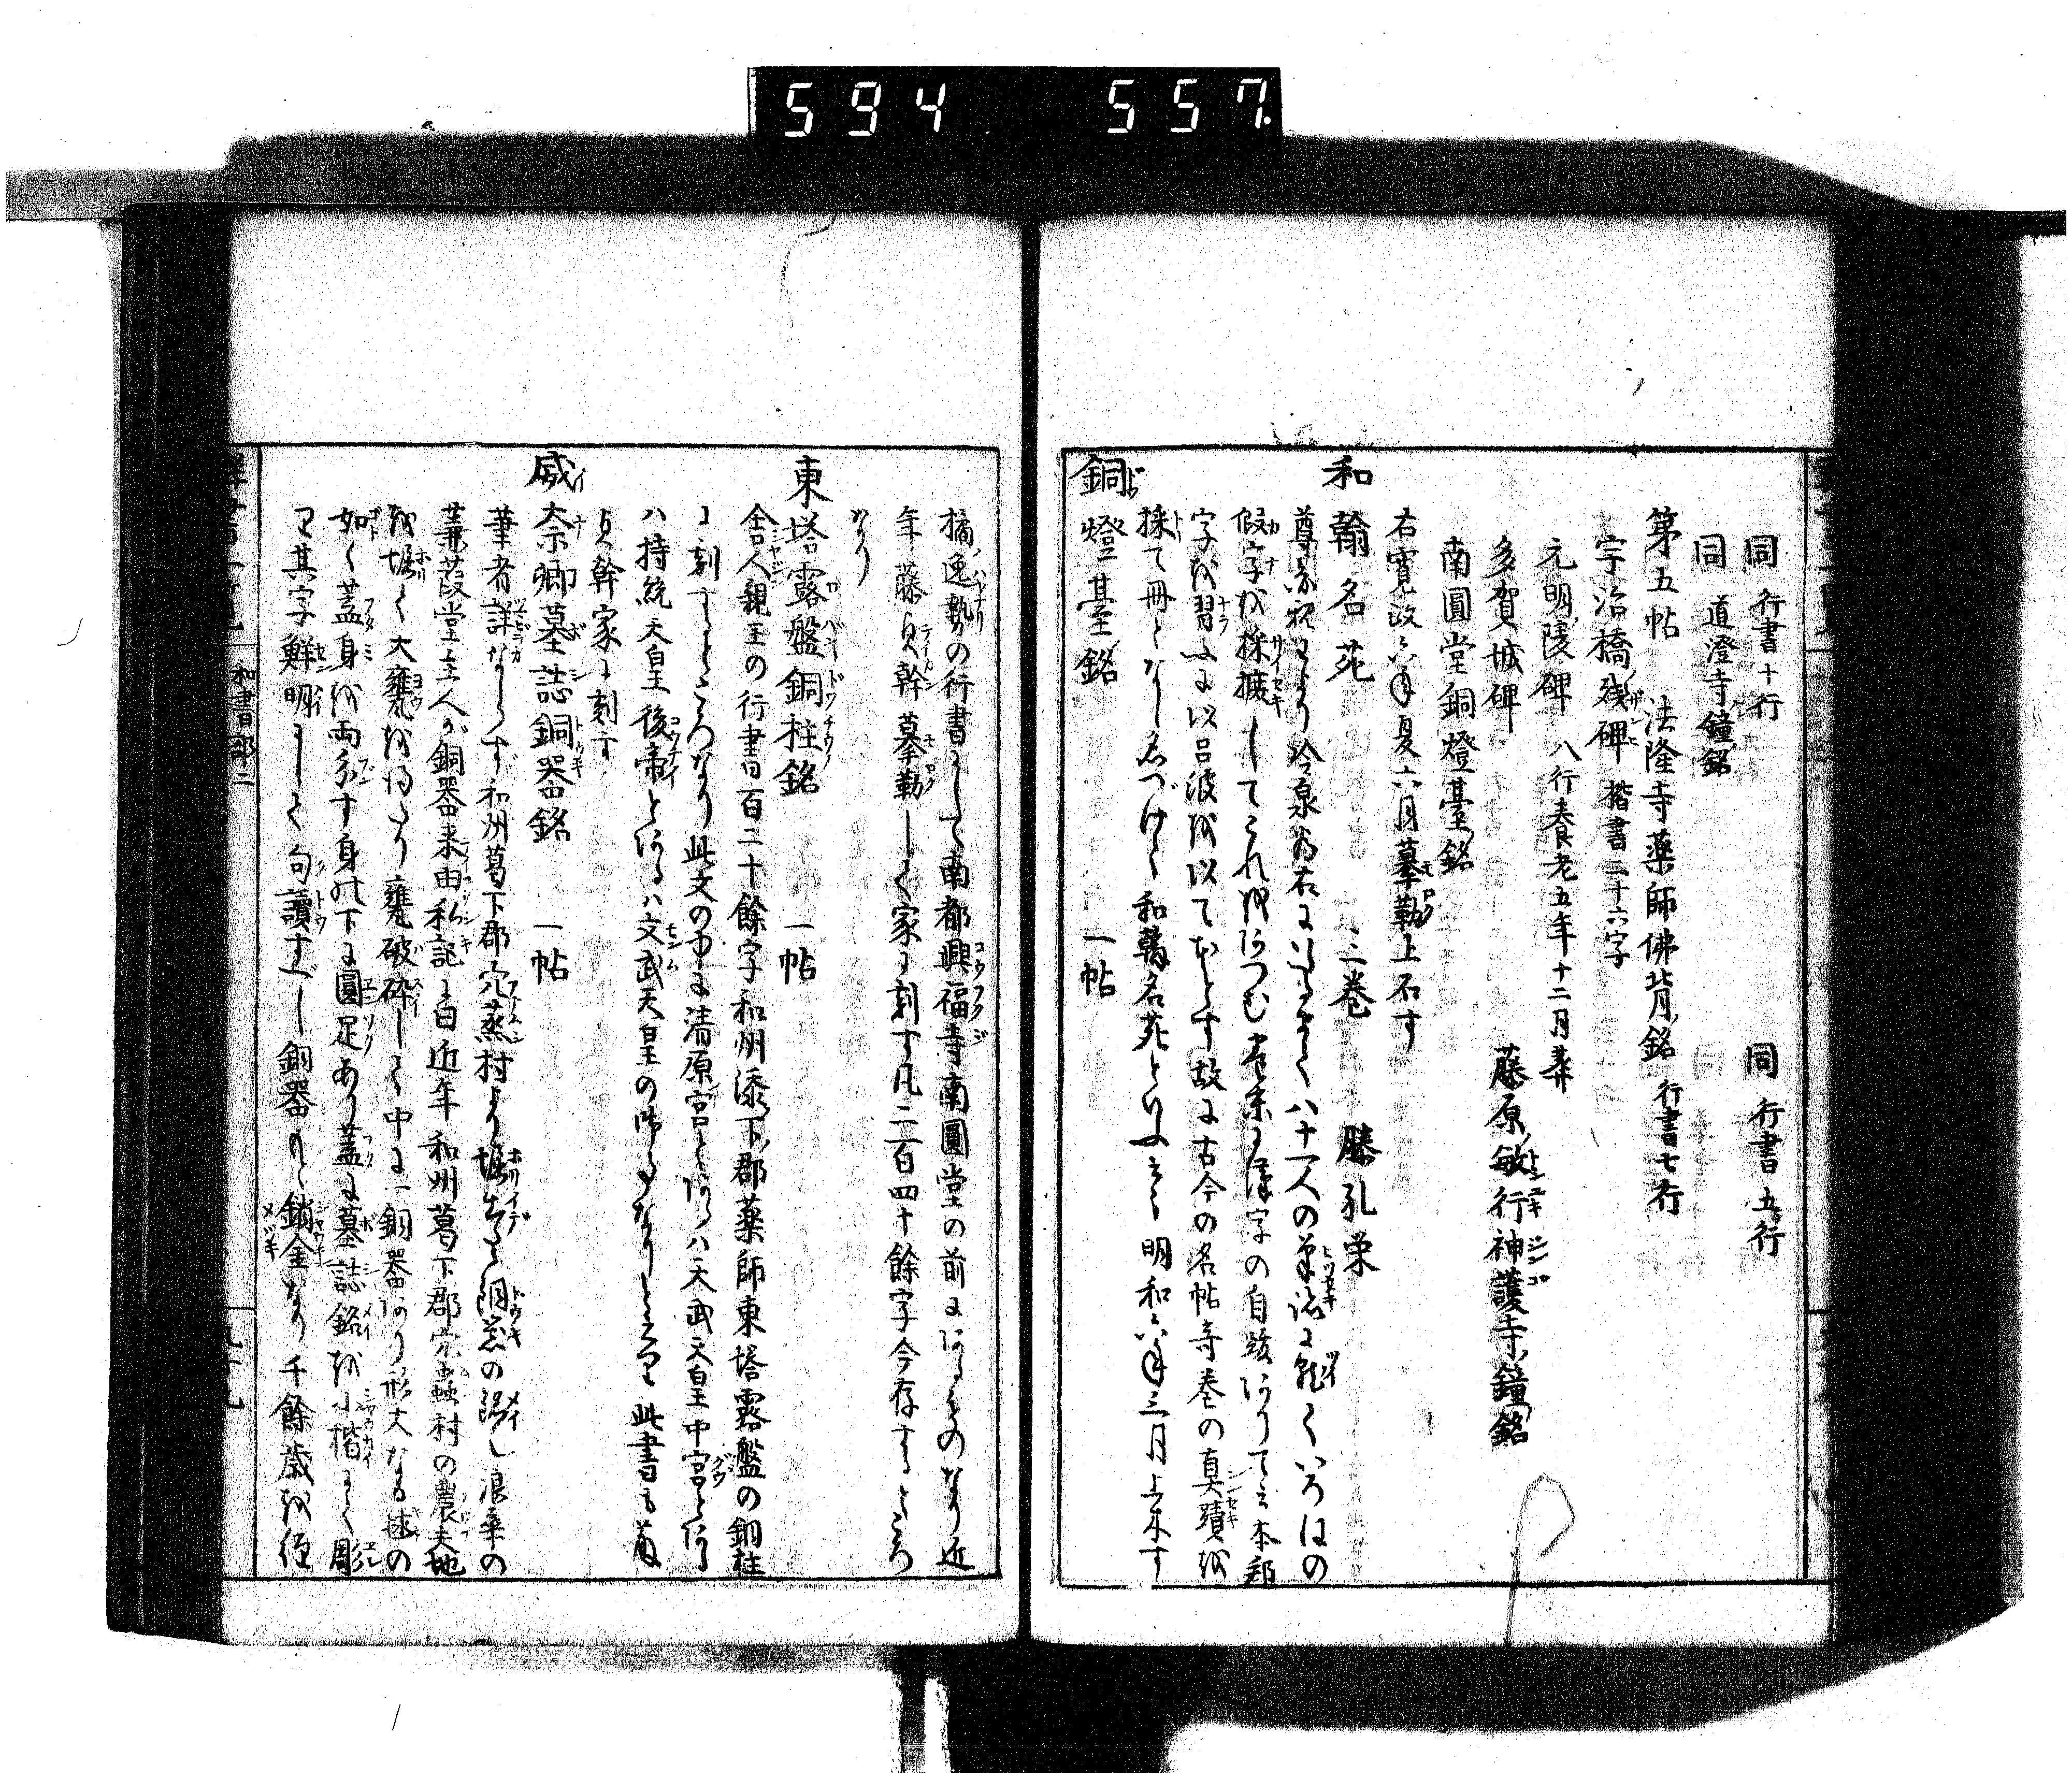 594 557
同 行書十行 同 行書五行
同 道澄寺鐘銘
第五帖 法隆寺藥師佛背ノ銘 行書七行
宇治橋ノ残碑 楷書二十六字
元明ノ陵ノ碑 八行養老五年十二月葬
多賀城碑 藤原ノ敏行神護寺ノ鐘ノ銘
南圓堂銅燈臺ノ銘
右寛政 年夏六月摹勒上石す
和翰名苑 二巻 勝孔栄
尊 より冷泉 八十一人の いろはの
假字を採摭してこれをあつむ 漢字の自跋ありて云本邦
字を習ふに以呂波を以て す故に古今の名帖寺巻の真蹟を
採て冊となし名づけて和翰名苑といふと云 明和 年三月上木す
銅燈臺ノ銘 一帖
橘ノ逸勢の行書にして南都興福寺南圓堂の前にあるものなり近
年藤貞幹摹勒して家に刻す凡二百四十餘字今存するところ
なり
東塔露盤銅柱ノ銘 一帖
舎人親王の行書百二十餘字和州添下ノ郡藥師東塔露盤の銅柱
に刻するところなり此文の中に清原ノ宮とあるハ天武天皇中宮とある
ハ持統天皇後帝とあるハ文武天皇の御 なりと云 此書も藤
貞幹家に刻す
威奈卿墓誌銅器銘 一帖
筆者詳ならず和州葛下郡穴蒸村より堀出たる銅器の銘也浪華の
蒹葭堂主人が銅器来由私記に曰近年和州葛下郡穴蟲村の農夫地
を堀て大甕を得たり甕破砕して中に一銅器あり形大なる 毬の
如く蓋身を両分す身の下に圓足あり蓋に墓誌銘を小楷にて彫
ス其字鮮明にして句讀すべし銅器ハ鎖金なり千餘歳を径
和書部二
九十九